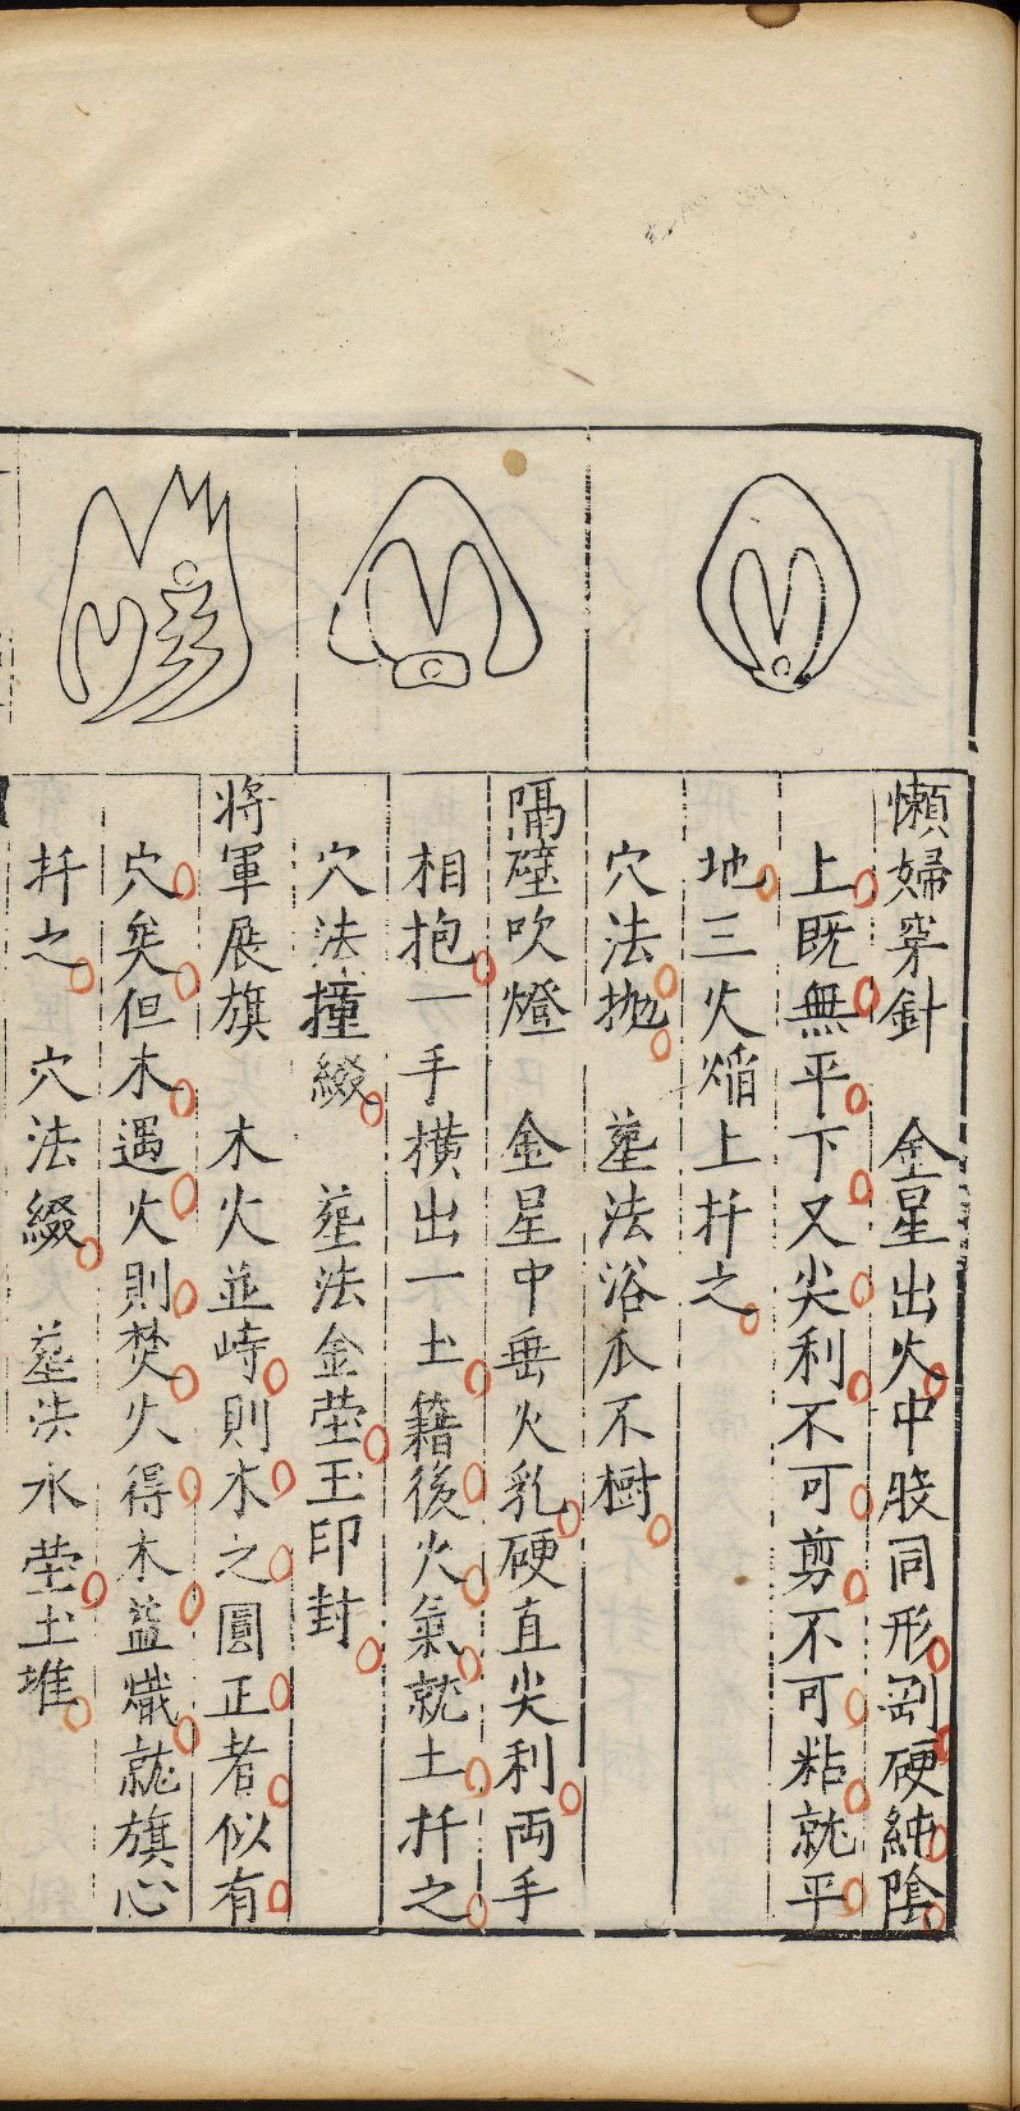 懶婦穿針　金星出火中脥同形剛硬純陰
上既無平下又尖利不可剪不可粘就平
地三火熖上扦之
穴法拋　塟法浴爪不樹
隔壁吹燈　金星中垂火乳硬直尖利両手
相抱一手横出一土籍後火氣就土扦之
穴法撞綴　塟法金塋玉印封
將軍展旗　木火並峙則木之圓正者似有
穴矣但木遇火則焚火得木益熾就旗心
扦之　穴法綴　塟法水塋土堆